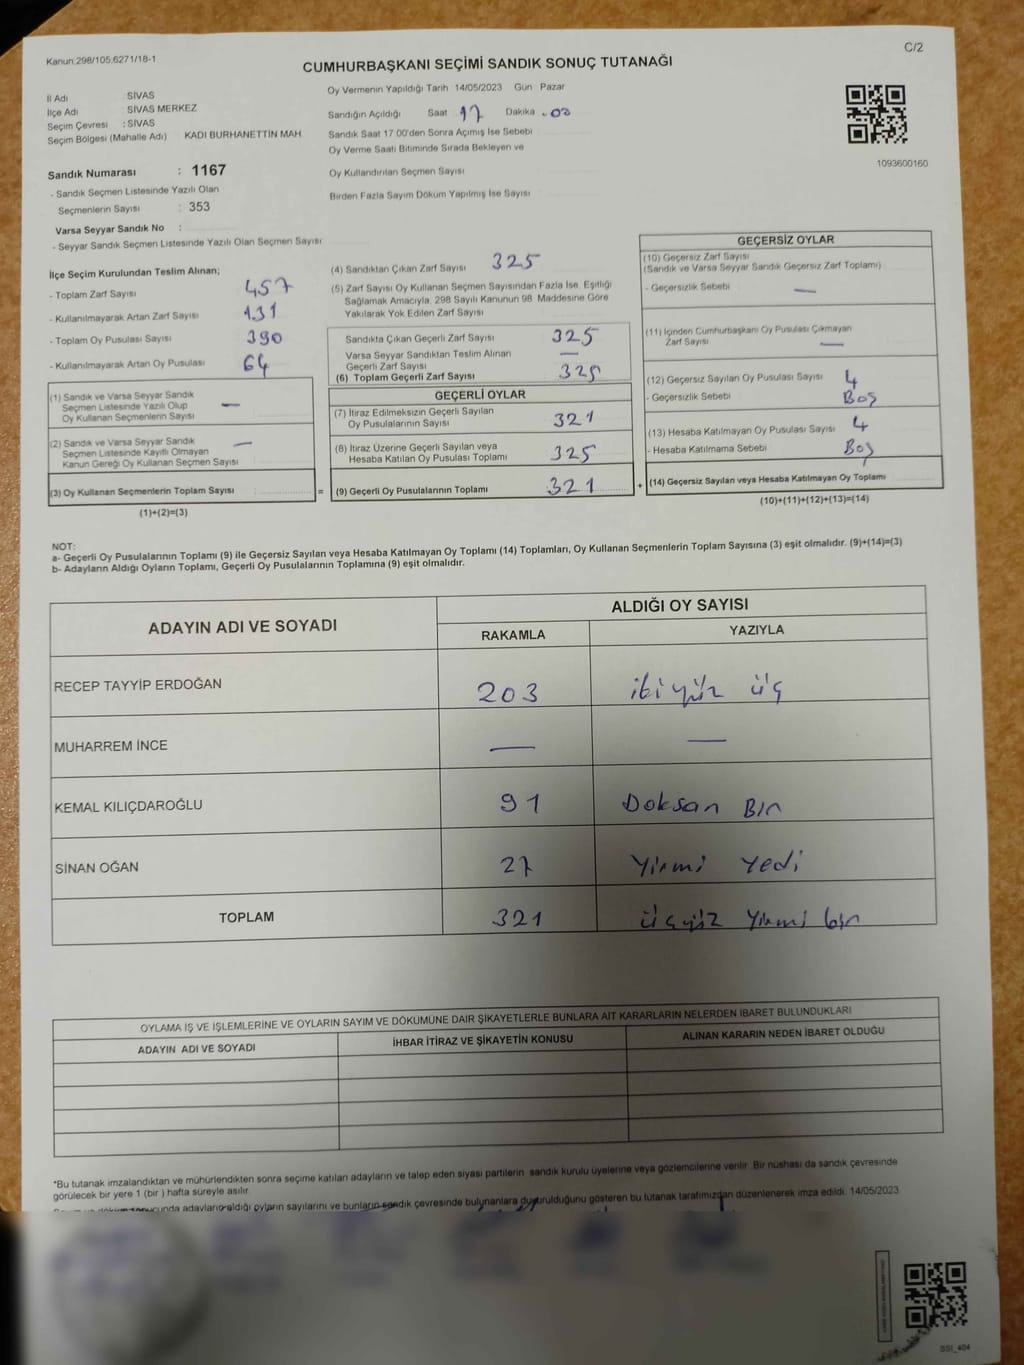 Kanun:298/105:6271/18-1
C/2
CUMHURBAŞKANI SEÇİMİ SANDIK SONUÇ TUTANAĞI
İl Adı : SİVAS
İlçe Adı : SİVAS MERKEZ
Seçim Çevresi : SİVAS
Seçim Bölgesi (Mahalle Adı) KADI BURHANETTİN MAH.
Sandık Numarası : 1167
- Sandık Seçmen Listesinde Yazılı Olan
Seçmenlerin Sayısı : 353
Varsa Seyyar Sandık No :
- Seyyar Sandık Seçmen Listesinde Yazılı Olan Seçmen Sayısı:
Oy Vermenin Yapıldığı Tarih 14/05/2023 Gün Pazar
Sandığın Açıldığı Saat 17 Dakika .00
Sandık Saat 17.00'den Sonra Açımış İse Sebebi
Oy Verme Saati Bitiminde Sırada Bekleyen ve
Oy Kullandırılan Seçmen Sayısı
Birden Fazla Sayım Döküm Yapılmış İse Sayısı
1093600160
İlçe Seçim Kurulundan Teslim Alınan;
- Toplam Zarf Sayısı 457
- Kullanılmayarak Artan Zarf Sayısı 131
- Toplam Oy Pusulası Sayısı 390
- Kullanılmayarak Artan Oy Pusulası 64
(1) Sandık ve Varsa Seyyar Sandık
Seçmen Listesinde Yazılı Olup
Oy Kullanan Seçmenlerin Sayısı —
(2) Sandık ve Varsa Seyyar Sandık
Seçmen Listesinde Kayıtlı Olmayan
Kanun Gereği Oy Kullanan Seçmen Sayısı —
(3) Oy Kullanan Seçmenlerin Toplam Sayısı =
(1)+(2)=(3)
(4) Sandıktan Çıkan Zarf Sayısı 325
(5) Zarf Sayısı Oy Kullanan Seçmen Sayısından Fazla İse, Eşitliği
Sağlamak Amacıyla, 298 Sayılı Kanunun 98. Maddesine Göre
Yakılarak Yok Edilen Zarf Sayısı
Sandıkta Çıkan Geçerli Zarf Sayısı 325
Varsa Seyyar Sandıktan Teslim Alınan
Geçerli Zarf Sayısı —
(6) Toplam Geçerli Zarf Sayısı 325
GEÇERLİ OYLAR
(7) İtiraz Edilmeksizin Geçerli Sayılan
Oy Pusulalarının Sayısı 321
(8) İtiraz Üzerine Geçerli Sayılan veya
Hesaba Katılan Oy Pusulası Toplamı 325
(9) Geçerli Oy Pusulalarının Toplamı 321 +
GEÇERSİZ OYLAR
(10) Geçersiz Zarf Sayısı
(Sandık ve Varsa Seyyar Sandık Geçersiz Zarf Toplamı)
- Geçersizlik Sebebi —
(11) İçinden Cumhurbaşkanı Oy Pusulası Çıkmayan
Zarf Sayısı —
(12) Geçersiz Sayılan Oy Pusulası Sayısı 4
- Geçersizlik Sebebi Boş
(13) Hesaba Katılmayan Oy Pusulası Sayısı 4
- Hesaba Katılmama Sebebi Boş
(14) Geçersiz Sayılan veya Hesaba Katılmayan Oy Toplamı
(10)+(11)+(12)+(13)=(14)
NOT:
a- Geçerli Oy Pusulalarının Toplamı (9) ile Geçersiz Sayılan veya Hesaba Katılmayan Oy Toplamı (14) Toplamları, Oy Kullanan Seçmenlerin Toplam Sayısına (3) eşit olmalıdır. (9)+(14)=(3)
b- Adayların Aldığı Oyların Toplamı, Geçerli Oy Pusulalarının Toplamına (9) eşit olmalıdır.
ADAYIN ADI VE SOYADI
ALDIĞI OY SAYISI
RAKAMLA YAZIYLA
RECEP TAYYİP ERDOĞAN 203 iki yüz üç
MUHARREM İNCE — —
KEMAL KILIÇDAROĞLU 91 Doksan Bir
SİNAN OĞAN 27 Yirmi Yedi
TOPLAM 321 üçyüz Yirmi bir
OYLAMA İŞ VE İŞLEMLERİNE VE OYLARIN SAYIM VE DÖKÜMÜNE DAİR ŞİKAYETLERLE BUNLARA AİT KARARLARIN NELERDEN İBARET BULUNDUKLARI
ADAYIN ADI VE SOYADI İHBAR İTİRAZ VE ŞİKAYETİN KONUSU ALINAN KARARIN NEDEN İBARET OLDUĞU
*Bu tutanak imzalandıktan ve mühürlendikten sonra seçime katılan adayların ve talep eden siyasi partilerin sandık kurulu üyelerine veya gözlemcilerine verilir. Bir nüshası da sandık çevresinde
görülecek bir yere 1 (bir ) hafta süreyle asılır.
adayların aldığı oyların sayılarını ve bunların sandık çevresinde bulunanlara duyurulduğunu gösteren bu tutanak tarafımızdan düzenlenerek imza edildi. 14/05/2023
SSI_404